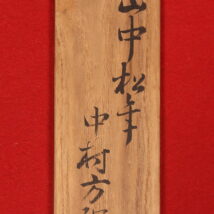 山中松年
中村方